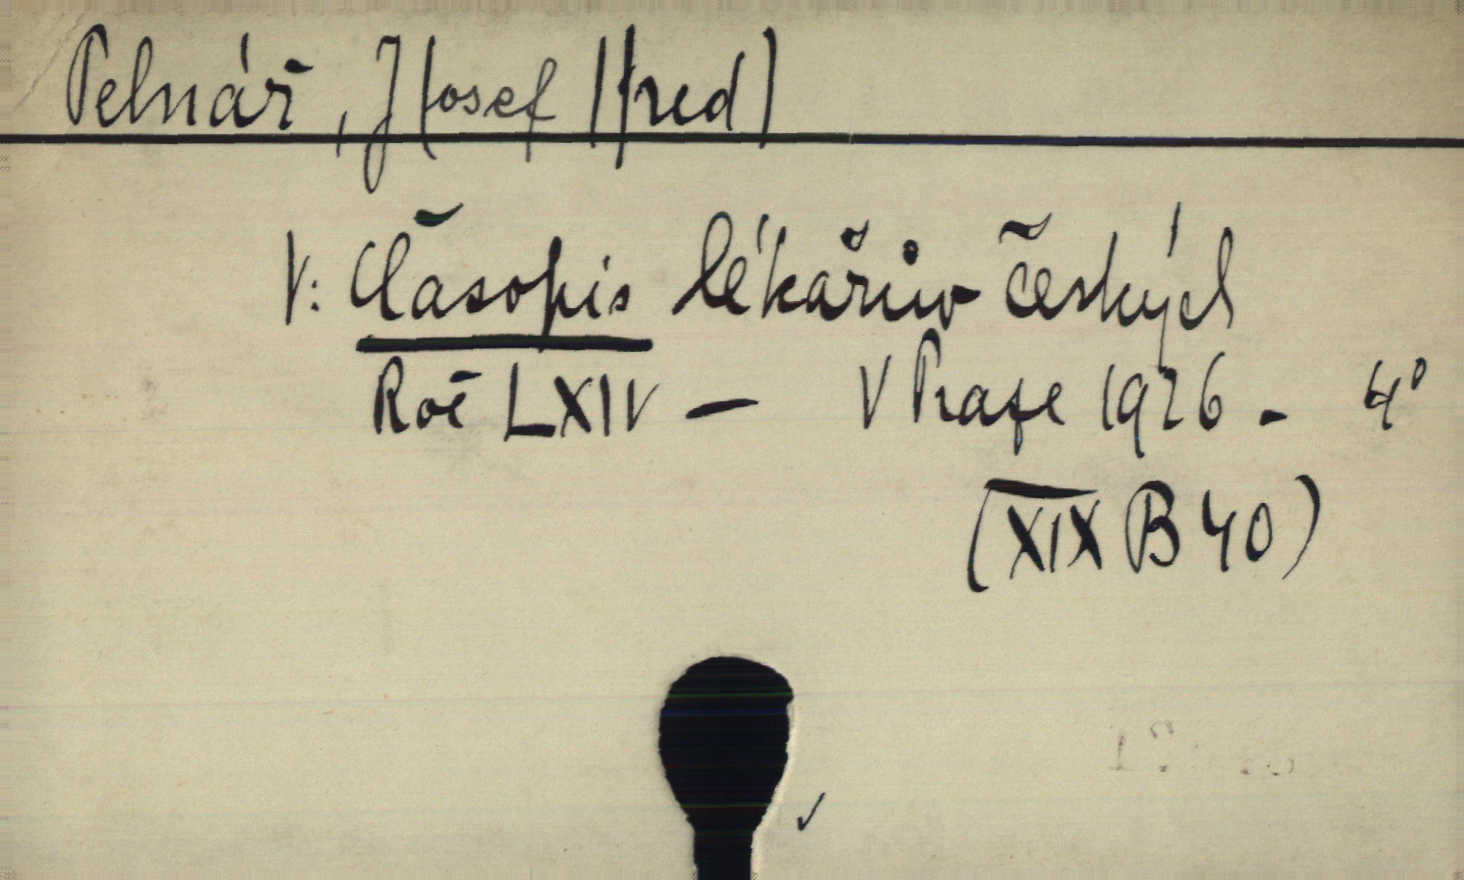 Pelnář, J(osef)(red)
V: Časopis lékařův českých
Roč LXIV — V Praze 1926 - 4°
(XIX B 40)